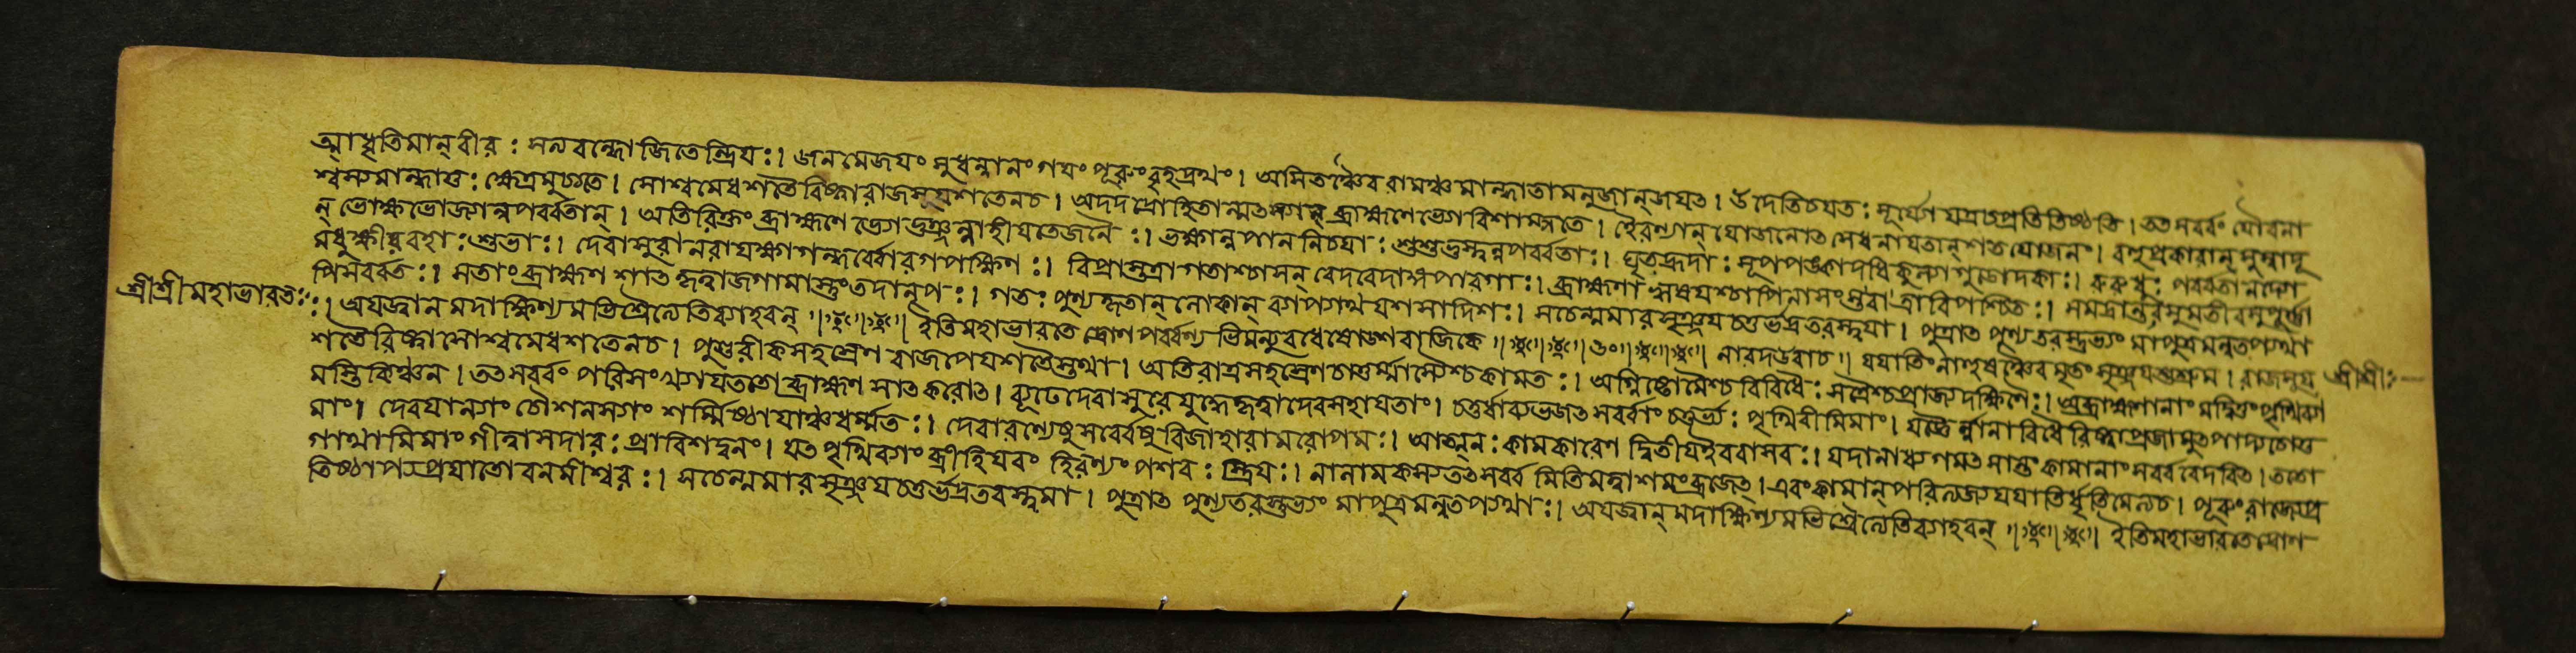 আধৃতিমান্‌বীর : সত্যবন্ধোজিতেন্দ্রিয :। জনমেজযং সুধন্বানং গযং পূরুং বৃহদ্রথং। অসিতঞ্চৈব রামঞ্চ মান্ধাতামনুজান্‌জযত। উদেতিচযত : সূর্য্যো যত্রচপ্রতিতিষ্ঠতি। তত সর্ব্বং যৌবনা
শ্বস্য মান্ধাতু : ক্ষেত্রমুচ্যতে। সোশ্বমেধ শতৈরিষ্ট্বারাজসূযশতেনচ। অদদ ব্রাহ্মণে বিশাম্পতে। হৈরণ্যান্‌ যোজনোত সেধনাযতান্‌ শত যোজনং। বহুপ্রকারান্‌ সুস্বাদূ
ন্‌ ভোক্ষভোজ্যান্নপর্ব্বতান্‌। অতিরিক্তং ব্রাহ্মণে ভ্যো ভুঞ্জন্নাহীযতেজনৈ :। ভক্ষ্যান্নপান নিচযা : শুশুভুস্ত্বন্নপর্ব্বতা :। ঘৃতহ্রদা : সূপপঙ্কাদধিফেনাগুডোদকা :। রুরুধু : পর্ব্বতা নদ্যো
মধুক্ষীরবহা : শুভা :। দেবাসুরানরাযক্ষাগন্ধর্ব্বোরগপক্ষিণ :। বিপ্রাস্তত্রাগতাশ্চাসন্‌ বেদবেদাঙ্গপারগা :। ব্রাহ্মণা
পিসর্ব্বত :। সতাং ব্রাহ্মণ শাত জগামাস্তংতদানৃপ :। গত : পুণ্যকৃতান্‌লোকান্‌ ব্যাপ্যথযশসাদিশ :। সচেন্মমার সৃঞ্জয চতুর্ভদ্রতরস্ত্বযা। পুত্রাত পুণ্যতরস্তুভ্যং মাপুত্রমনুতপ্যথা
শ্রীশ্রীমহাভারত : :। অযজ্বান মদাক্ষিণ্যমভিশ্বৈত্যেতিব্যাহরন্‌ ॥ ইতিমহাভারতে দ্রোণ পর্ব্বণ্য ভিমন্যুবধেষোডশরাজিকে ॥ ৬০॥ নারদউবাচ॥ যযাতিং নাহুষঞ্চৈব মৃতং সৃঞ্জযশুশ্রুম। রাজসূয শ্রীশ্রী :
শতৈরিষ্ট্বা সোশ্বমেধশতেনচ। পুণ্ডরীকসহস্রেণ বাজপেযশতৈস্তথা। অতিরাত্রসহস্রেণ চাতুর্ম্মাস্যৈশ্চকামত :। অগ্নিষ্টোমৈশ্চ বিবিধৈ : সত্রৈশ্চপ্রাজ্যদক্ষিণৈ :।
মস্তি কিঞ্চন। তত সর্ব্বং পরিসংখ্যাযততো ব্রাহ্মণ সাত করোত। ব্যূঢেদেবাসুরেযুদ্ধেকৃত্বাদেবসহাযতাং। চতুর্ধাব্যভজত সর্ব্বাং চতুর্ভ্য : পৃথিবীমিমাং। যজ্ঞৈর্ন্নানাবিধৈরিষ্ট্বাপ্রজামুতপাদ্যচোত্ত
মাং। দেবযান্যাং চৌশনস্যাং শর্ম্মিষ্ঠাযাঞ্চধর্ম্মত :। দেবারণ্যেষুসর্ব্বেষু বিজাহারামরোপম :। আত্মন : কামকারেণ দ্বিতীযইববাসব :। যদানাধ্যগমত সান্তং কামানাং সর্ব্ববেদবিত। ততো
গাথামিমাং গীত্বাসদার : প্রাবিশদ্বনং। যত পৃথিব্যাং ব্রীহিযবং হিরণ্যং পশব : স্ত্রিয :। নানামেকস্য তত সর্ব্ব মিতিমত্বাশমংব্রজেত্‌। এবংকামান্‌পরিত্যজ্য যযাতির্ধৃতিমেত্যচ। পূরুং রাজ্যেপ্র
তিষ্ঠাপ্যপ্রযাতোবনমীশ্বর :। সচেন্মমার সৃঞ্জয চতুর্ভদ্রতরস্ত্বযা। পুত্রাত পুণ্যতরস্তুভ্যং মাপুত্রমনুতপ্যথা :। অযজ্বান্‌মদাক্ষিণ্যমভিশ্বৈত্যেতিব্যাহরন্‌ ॥ ইতিমহাভারতেদ্রোণ